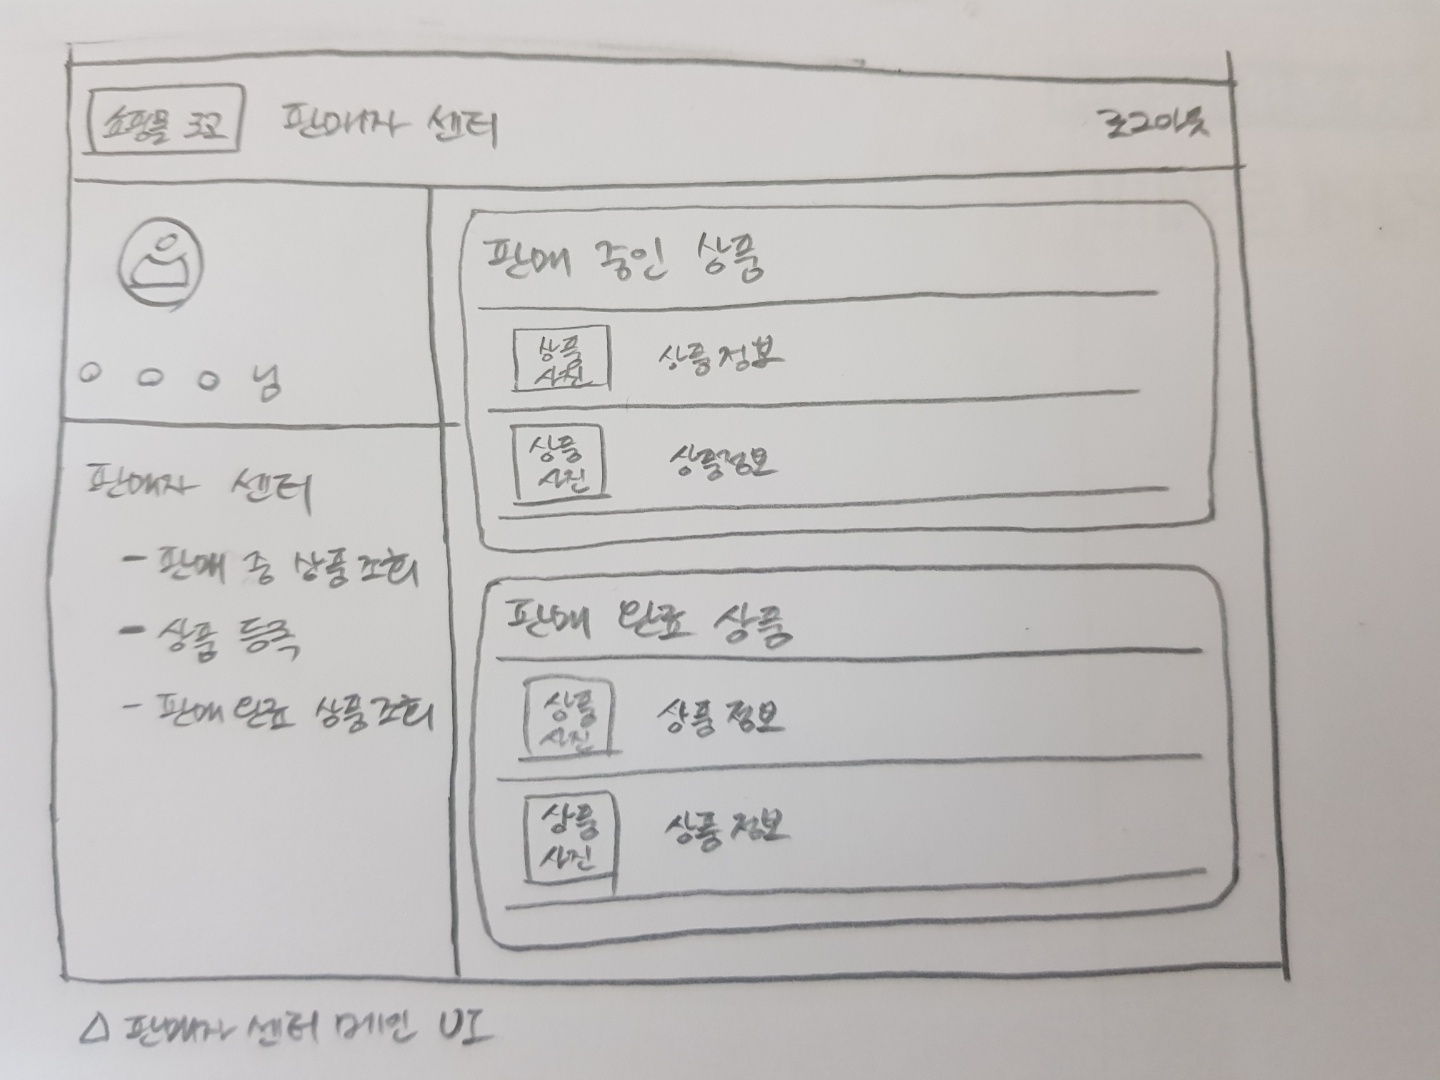 쇼핑몰 로고 판매자 센터 로그아웃
ㅇㅇㅇ님
판매자 센터
- 판매 중 상품조회
- 상품 등록
- 판매완료 상품조회
판매 중인 상품
상품
사진
상품정보
상품
사진
상품정보
판매 완료 상품
상품
사진
상품정보
상품
사진
상품정보
△ 판매자 센터 메인 UI